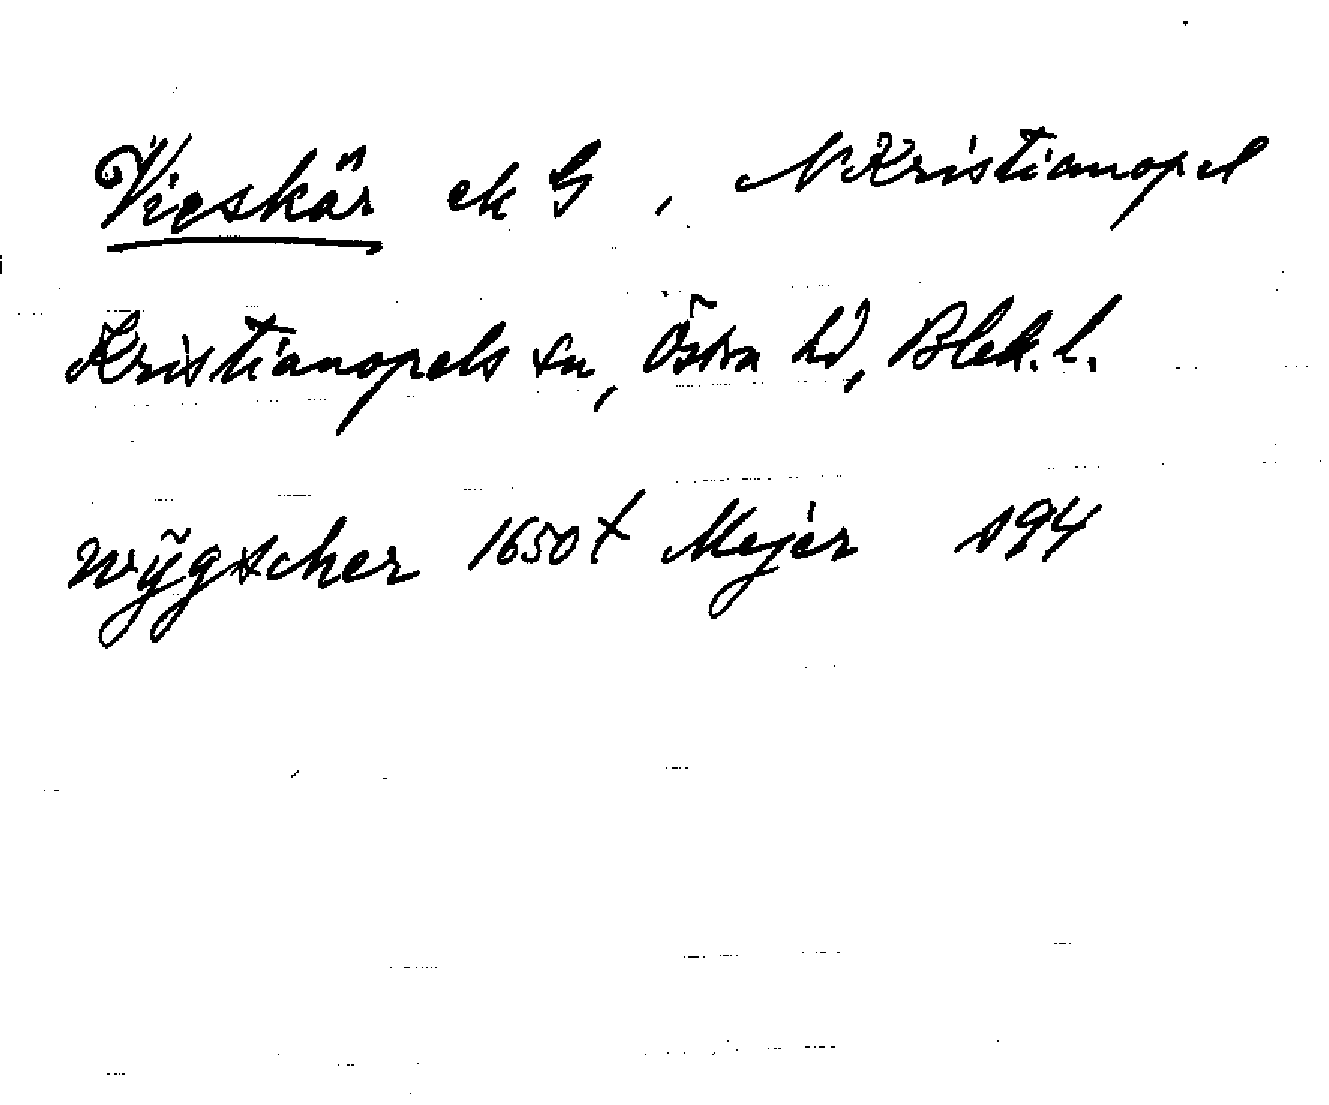 Vieskär ek G, N Kristianopel
Kristianopels sn, Östra hd, Blek. l.
wÿgscher 1650t Mejer s94